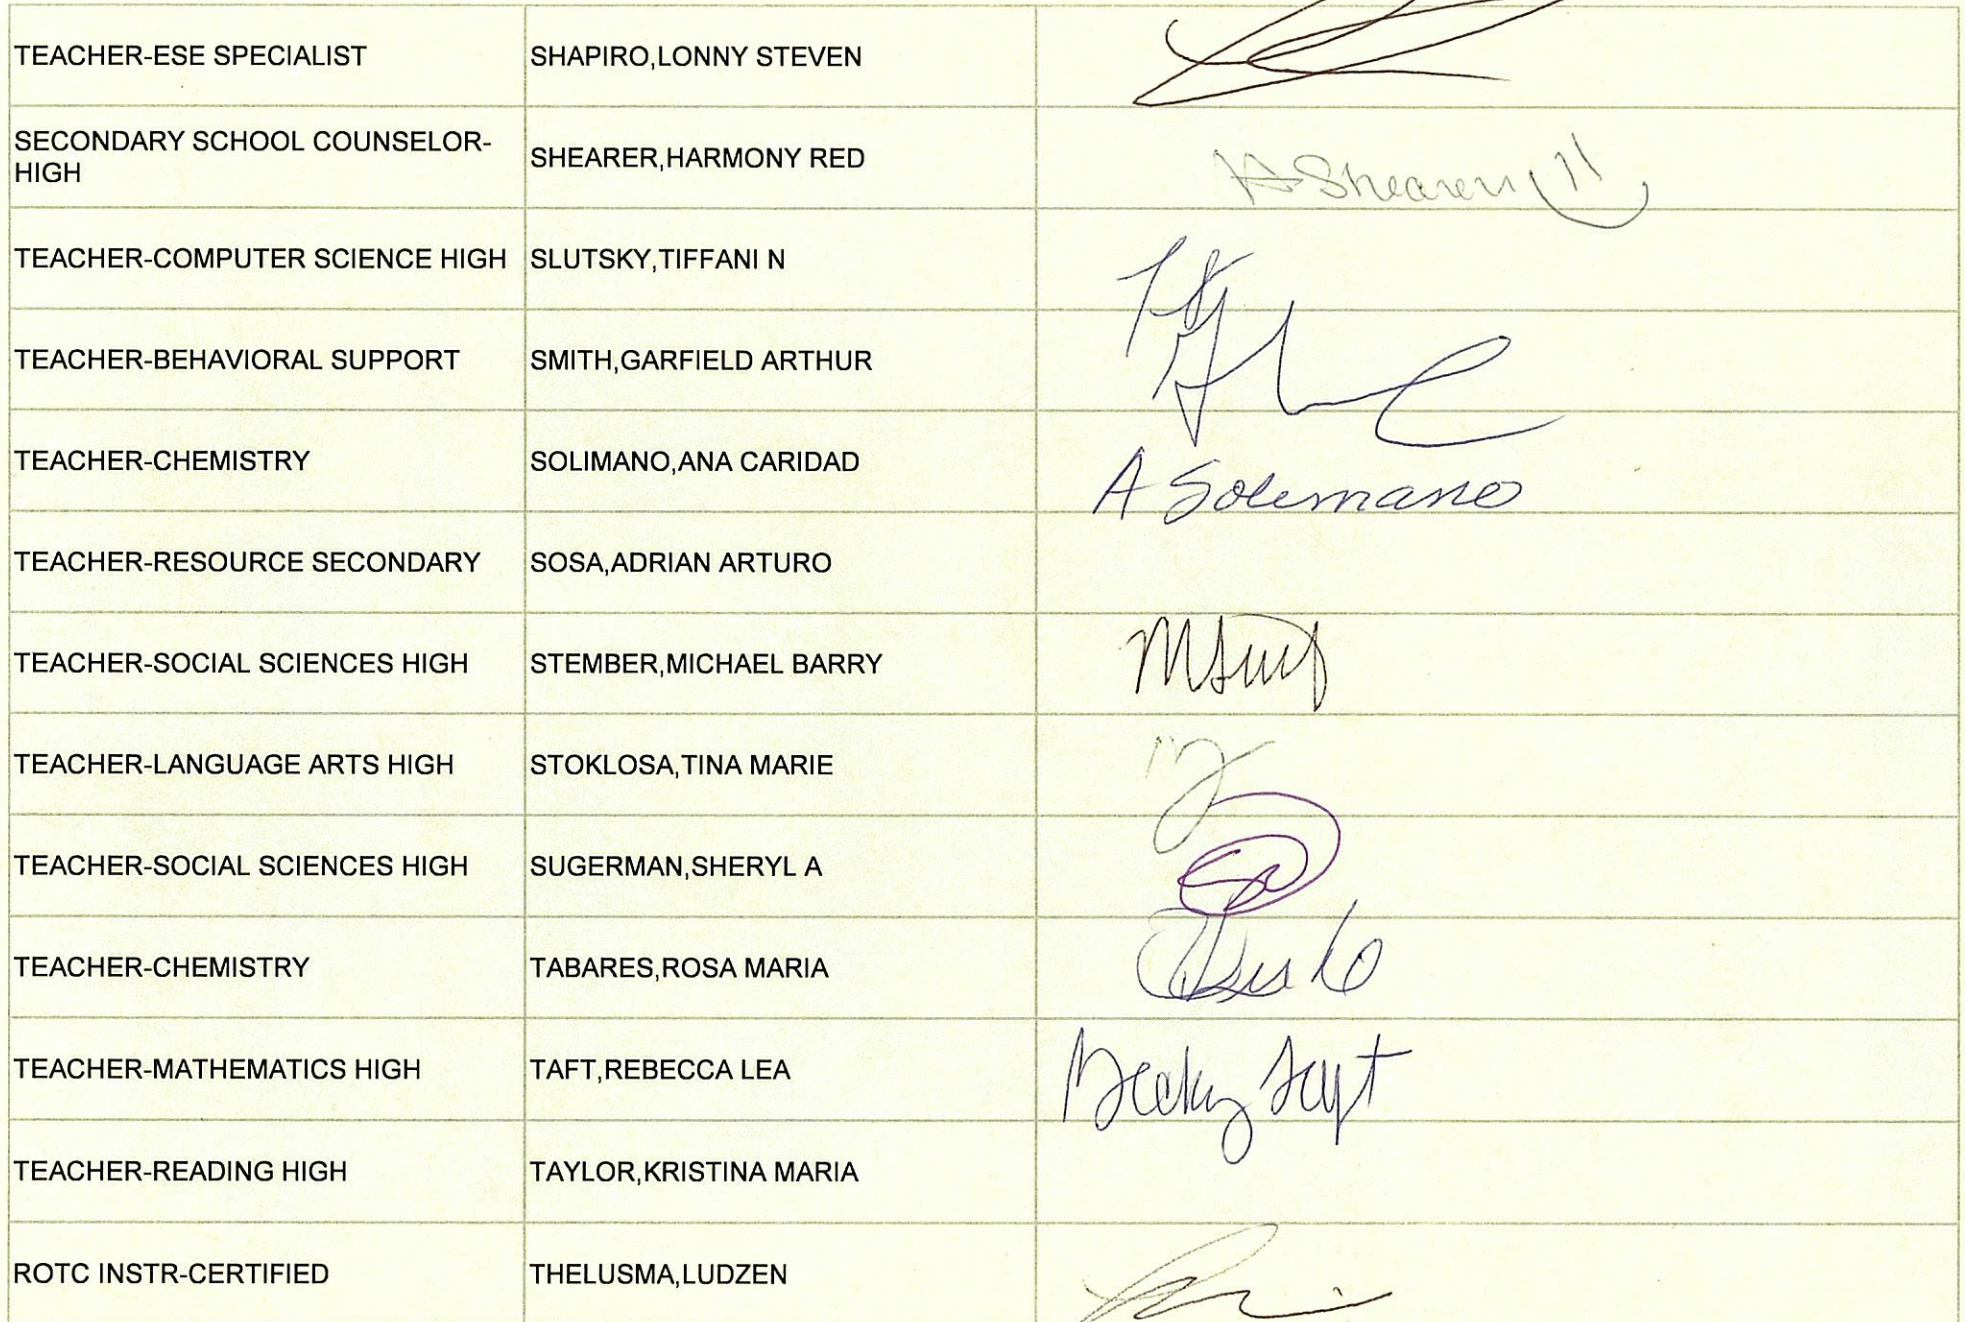 TEACHER-ESE SPECIALIST SHAPIRO,LONNY STEVEN
SECONDARY SCHOOL COUNSELOR-
HIGH SHEARER,HARMONY RED H Shearer
TEACHER-COMPUTER SCIENCE HIGH SLUTSKY,TIFFANI N
TEACHER-BEHAVIORAL SUPPORT SMITH,GARFIELD ARTHUR
TEACHER-CHEMISTRY SOLIMANO,ANA CARIDAD A Solimano
TEACHER-RESOURCE SECONDARY SOSA,ADRIAN ARTURO
TEACHER-SOCIAL SCIENCES HIGH STEMBER,MICHAEL BARRY
TEACHER-LANGUAGE ARTS HIGH STOKLOSA,TINA MARIE
TEACHER-SOCIAL SCIENCES HIGH SUGERMAN,SHERYL A
TEACHER-CHEMISTRY TABARES,ROSA MARIA
TEACHER-MATHEMATICS HIGH TAFT,REBECCA LEA Becky Taft
TEACHER-READING HIGH TAYLOR,KRISTINA MARIA
ROTC INSTR-CERTIFIED THELUSMA,LUDZEN